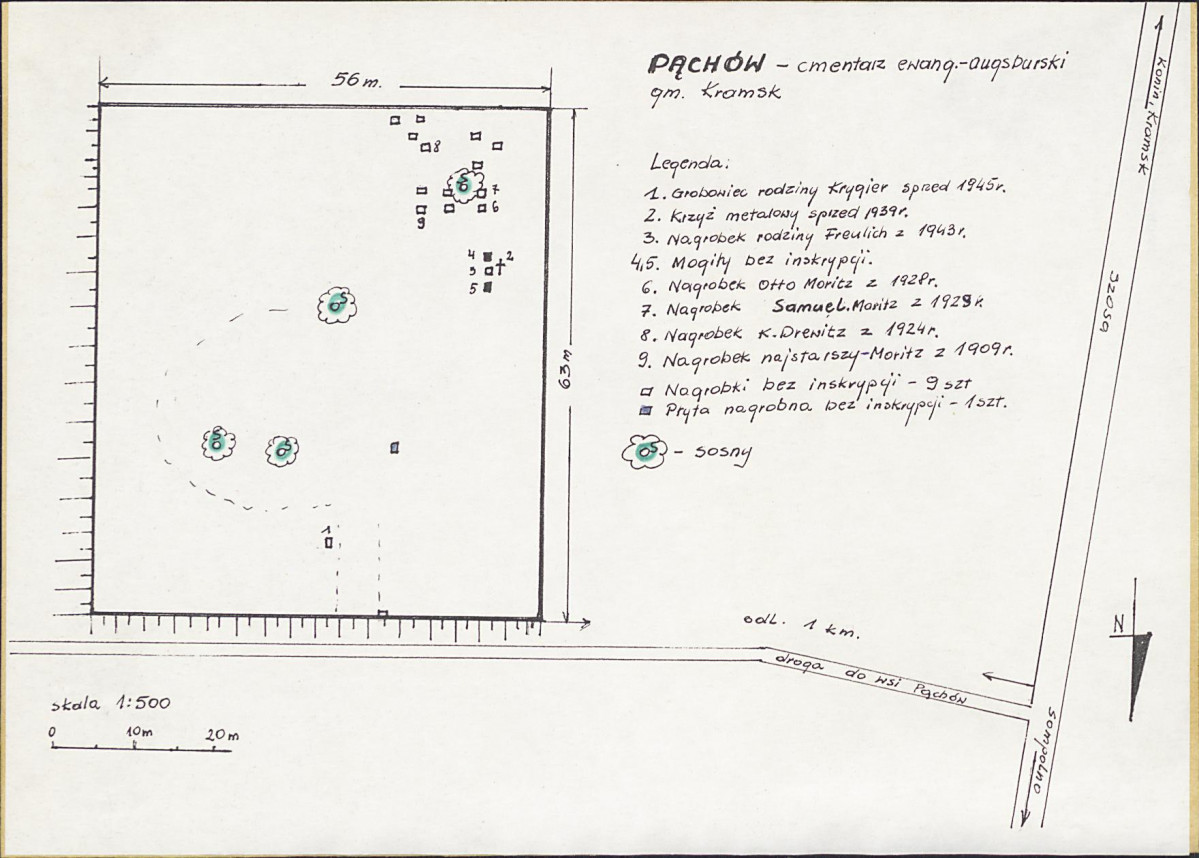 PĄCHÓW – cmentarz ewang.-augsburski
gm. Kramsk
56 m.
63 m.
8
7
6
9
4
2
3
5
1
Legenda:
1. Grobowiec rodziny Krygier sprzed 1945r.
2. Krzyż metalowy sprzed 1939r.
3. Nagrobek rodziny Freulich z 1943r.
4,5. Mogiły bez inskrypcji.
6. Nagrobek Otto Moritz z 1928r.
7. Nagrobek Samuel.Moritz z 1929r.
8. Nagrobek K.Drewitz z 1924r.
9. Nagrobek najstarszy-Moritz z 1909r.
Nagrobki bez inskrypcji – 9 szt
Płyta nagrobna bez inskrypcji – 1szt.
S – sosny
S
S
S
S
Konin, Kramsk
szosa
Sompolno
N
odl. 1 km.
droga do wsi Pąchów
skala 1:500
0 10m 20m